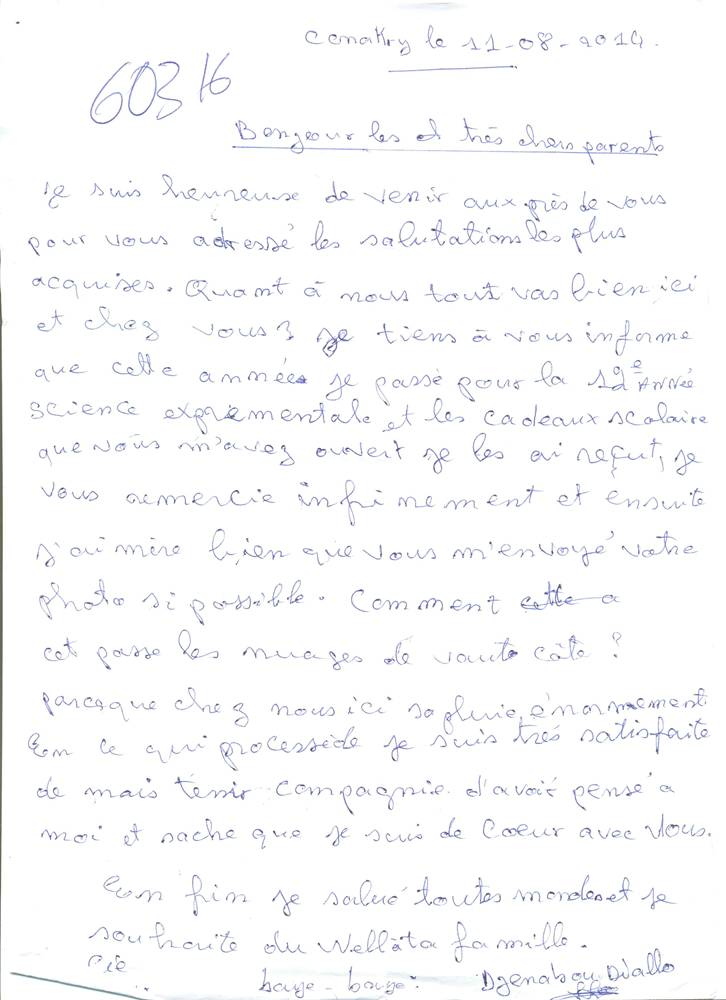 Conakry le 11-08-2014.
60316
Bongeour les et très chers parents
Je suis heureuse de venir aux près de vous
pour vous adressé les salutations les plus
acquises. Quant à nous tout vas bien ici
et chez vous? Je tiens à vous informe
que cette années je passe pour la 12e ANNÉE
science exprementale et les cadeaux scolaire
que vous m'avez ouvert je les ai reçut, je
vous remercie infinement et ensuite
j'ai mère bien que vous m'envoyé votre
photo si possible. Comment cette a
cet passe les nuages de vaute côte ?
parceque chez nous ici sa pluie énormement.
En ce qui processède je suis très satisfaite
de mais tenir compagnie d'avoir pensé a
moi et sache que je suis de Coeur avec Vous.
En fin je salué toutes mondes et je
souhaite du Wellàta famille.
baye-baye. Djenabou Diallo